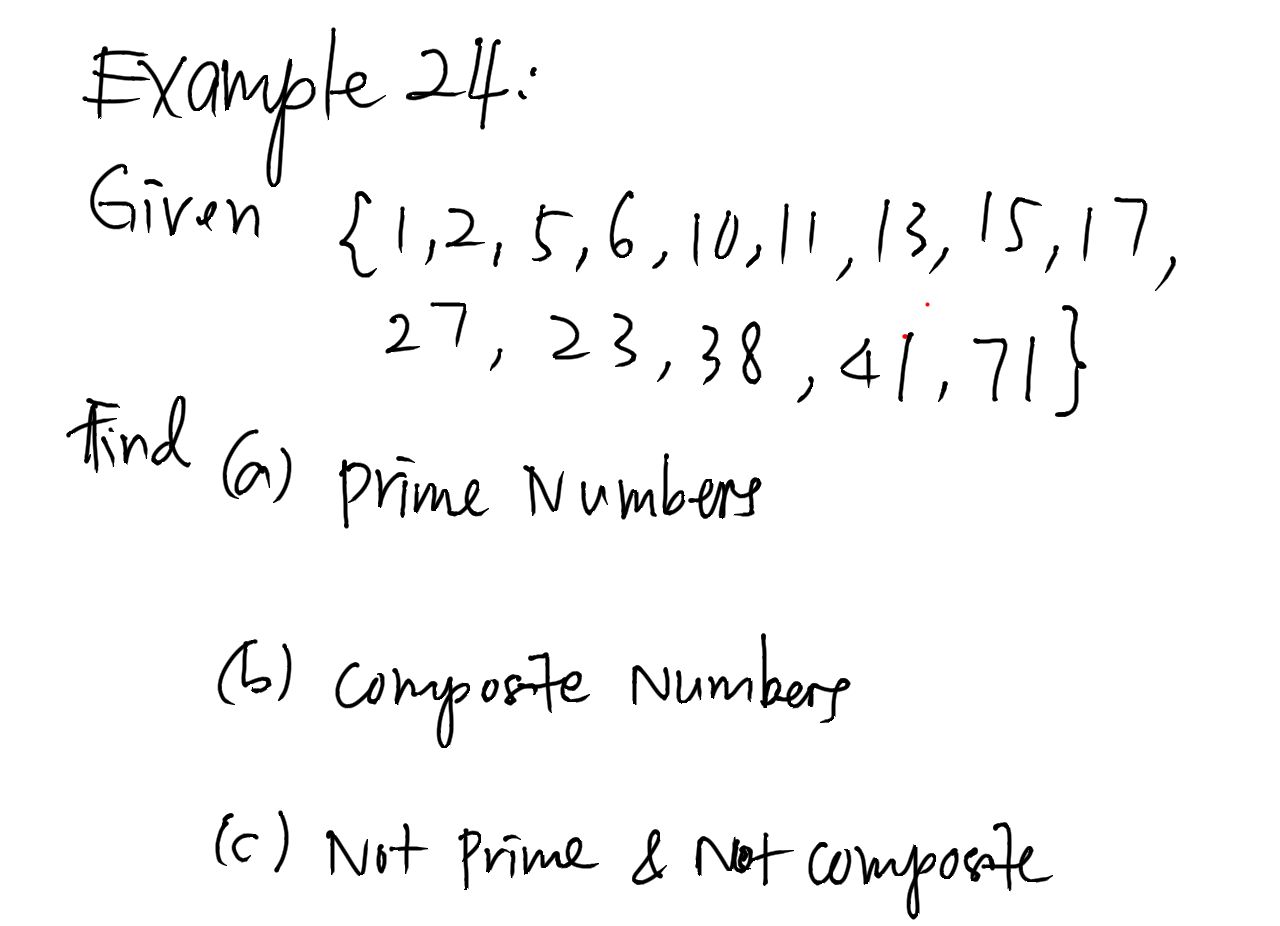 Example 24:
Given {1,2,5,6,10,11,13,15,17,
27,23,38,41,71}
Find (a) Prime Numbers
(b) Composite Numbers
(c) Not Prime & Not Composite